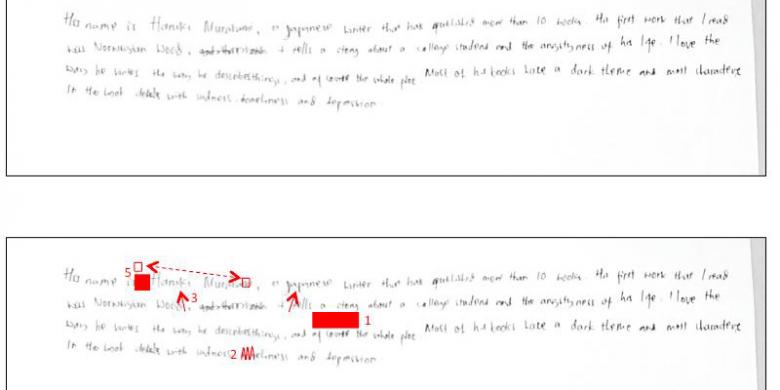 His name is Haruki Murakami, a japanese writer that has published more than 10 books. His first work that I read
was Norwegian Wood, it tells a story about a college student and the angstyness of his life. I love the
way he writes the way he describes things, and of course the whole plot. Most of his books have a dark theme and most characters
in the book debate with sadness, loneliness and depression.
His name is Haruki Murakami, a japanese writer that has published more than 10 books. His first work that I read
5
3
was Norwegian Wood, tells a story about a college student and the angstyness of his life. I love the
1
way he writes the way he describes things, and of course the whole plot. Most of his books have a dark theme and most characters
2
in the book debate with sadness and depression.